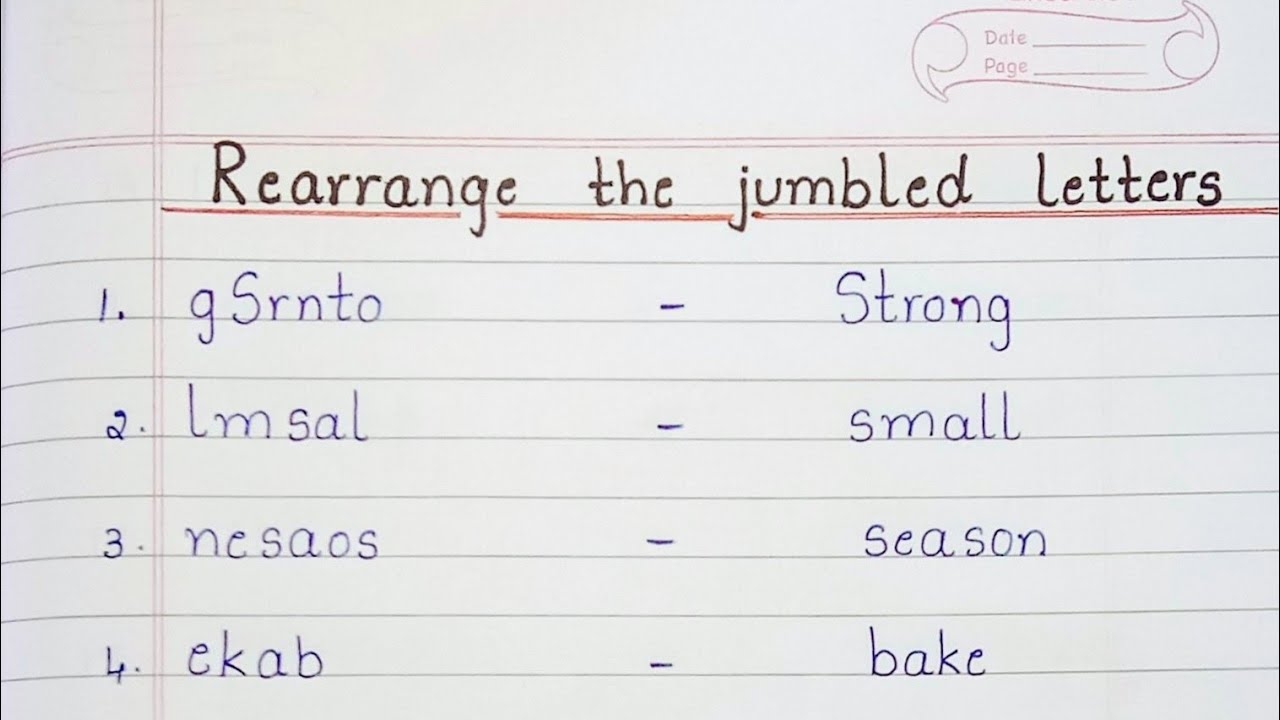 Date
Page
Rearrange the jumbled letters
1. gSrnto - Strong
2. lmsal - small
3. nesaos - season
4. ekab - bake